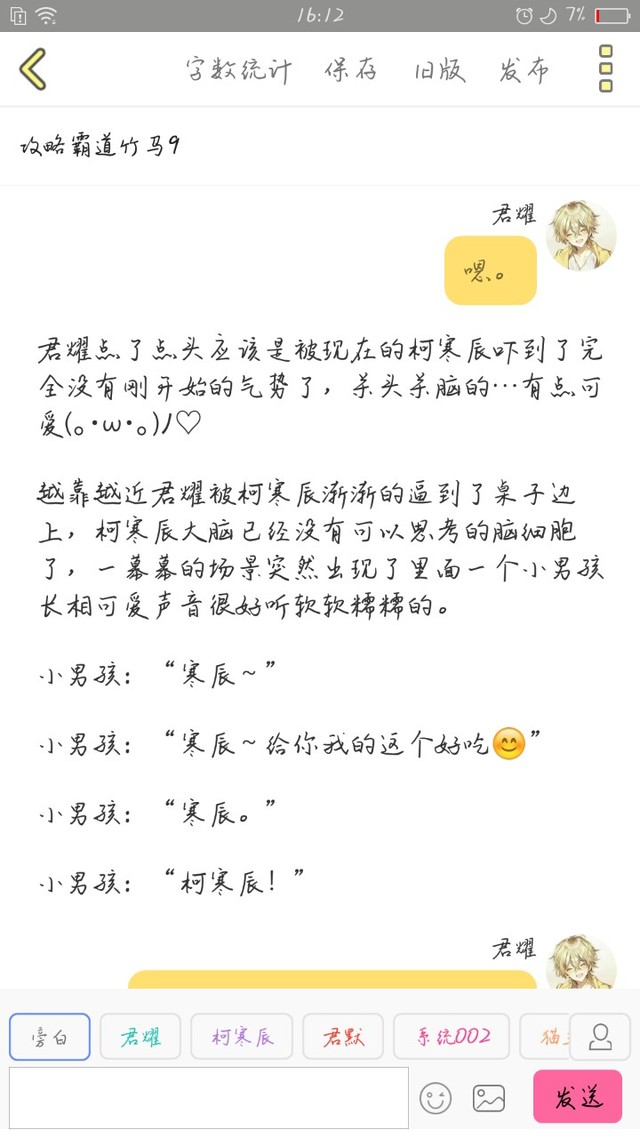 16:12
7%
字数统计 保存 旧版 发布
攻略霸道竹马9
君耀
嗯。
君耀点了点头应该是被现在的柯寒辰吓到了完
全没有刚开始的气势了，杀头杀脑的…有点可
爱(｡･ω･｡)ﾉ♡
越靠越近君耀被柯寒辰渐渐的逼到了桌子边
上，柯寒辰大脑已经没有可以思考的脑细胞
了，一幕幕的场景突然出现了里面一个小男孩
长相可爱声音很好听软软糯糯的。
小男孩：“寒辰~”
小男孩：“寒辰~给你我的这个好吃😊”
小男孩：“寒辰。”
小男孩：“柯寒辰！”
君耀
旁白 君耀 柯寒辰 君默 系统002 猫
发送